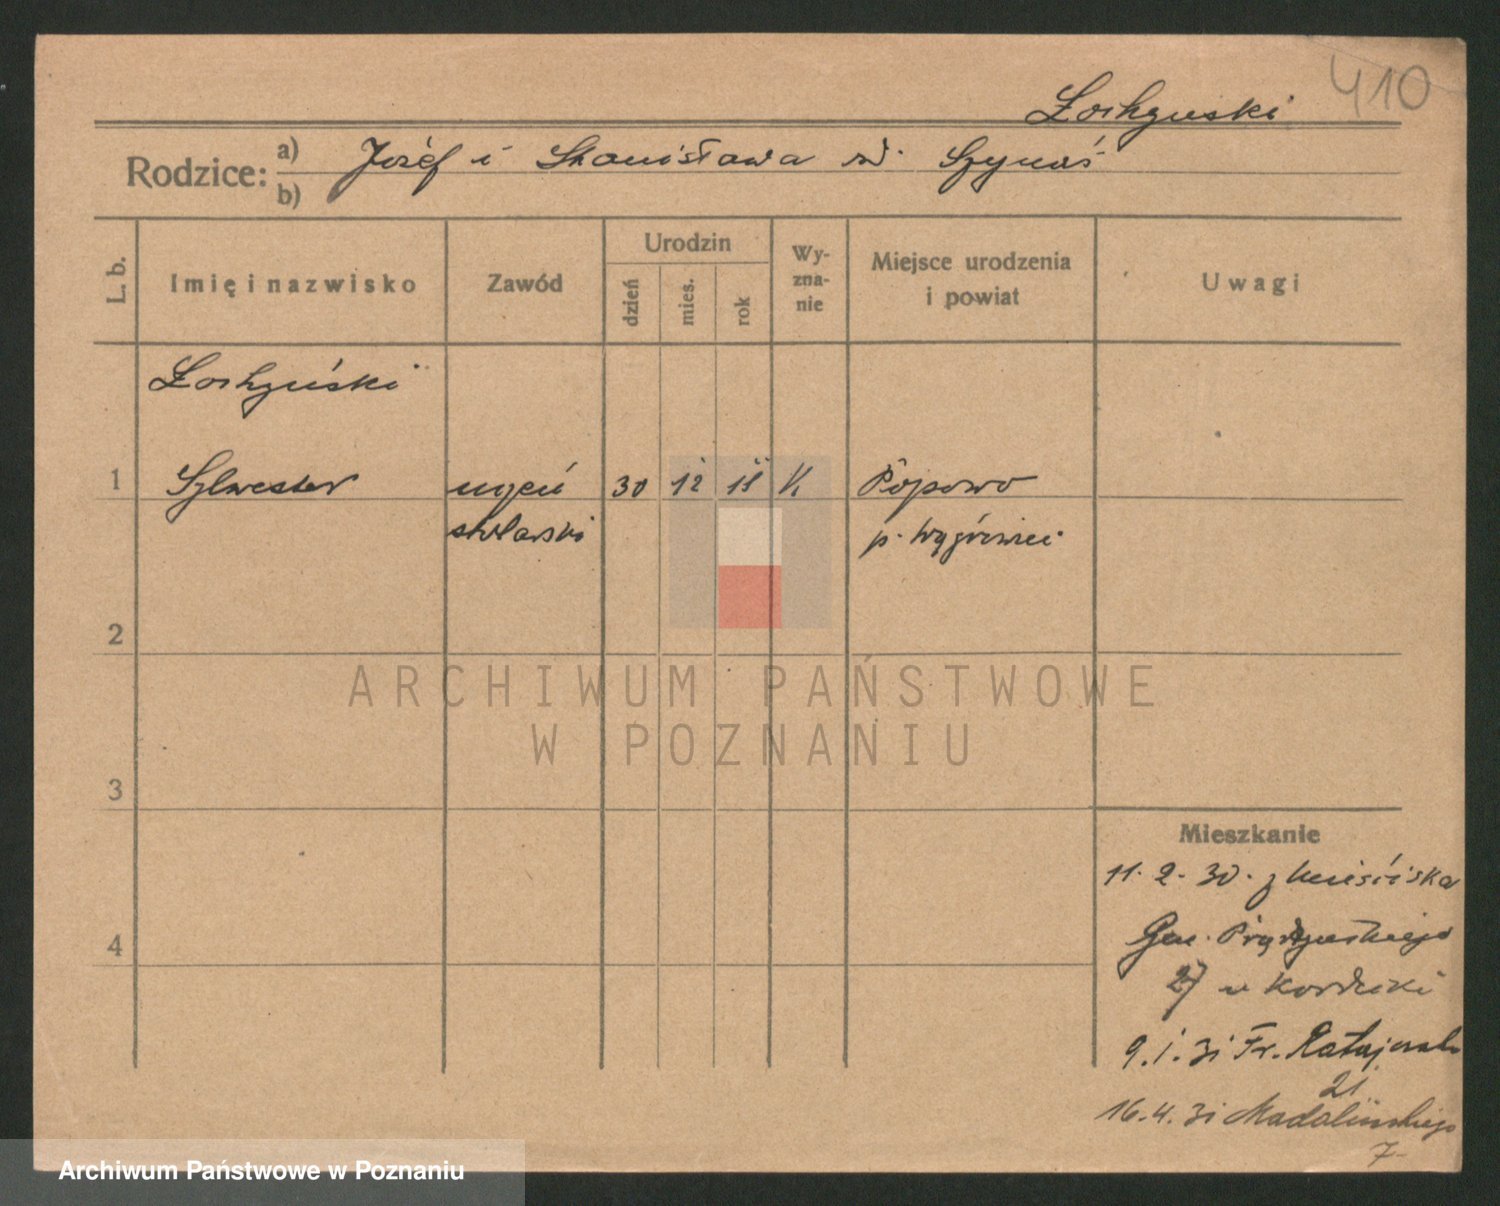 410
Łochyński
Rodzice: a) Józef i Stanisława
b)
L. b.
Imię i nazwisko
Zawód
Urodzin
dzień
mies.
rok
Wy-
zna-
nie
Miejsce urodzenia
i powiat
Uwagi
Łochyński
1 Sylwester uczeń 30 12 11 K Popowo
stolarski p.
2
3
4
ARCHIWUM PAŃSTWOWE
W POZNANIU
Mieszkanie
11. 2. 30. z
Gen. Prądzyńskiego
27 u
9. 1. 31 Fr. Ratajczaka
21
16. 4. 31 Madalińskiego
7
Archiwum Państwowe w Poznaniu